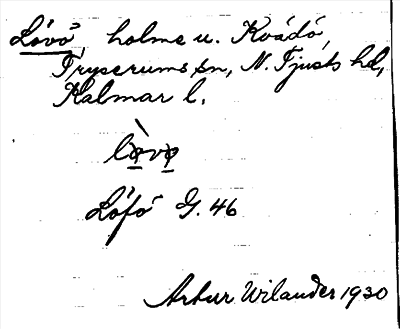 Lövö, holme u. Kvädö,
Tryserums sn, N. Tjusts hd,
Kalmar l.
lø̀vø
Löfö G. 46
Artur Wilander 1930